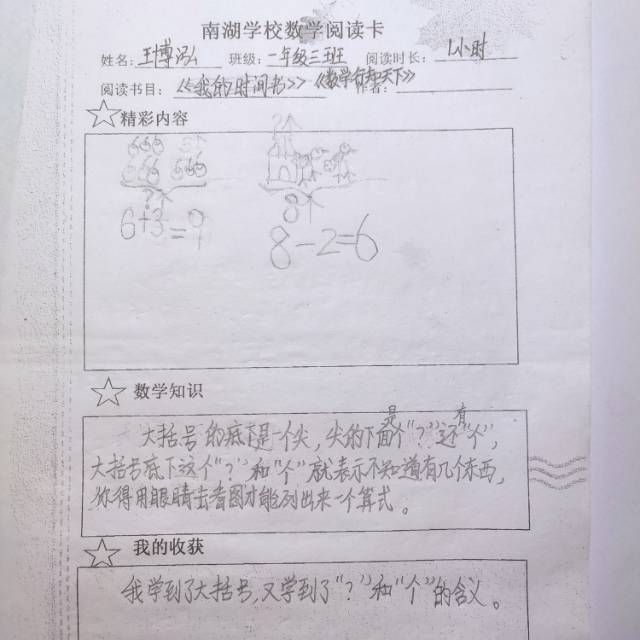 南湖学校数学阅读卡
姓名：王博泓 班级：一年级三班 阅读时长：1小时
阅读书目：《我的时间书》《数学行知天下》 作者：
精彩内容
?个 8个
6+3=9 8-2=6
数学知识
大括号的底下是一个尖，尖的下面是个“?”还有“个”，
大括号底下这个“?”和“个”就表示不知道有几个东西，
你得用眼睛去看图才能列出来一个算式。
我的收获
我学到了大括号，又学到了“?”和“个”的含义。